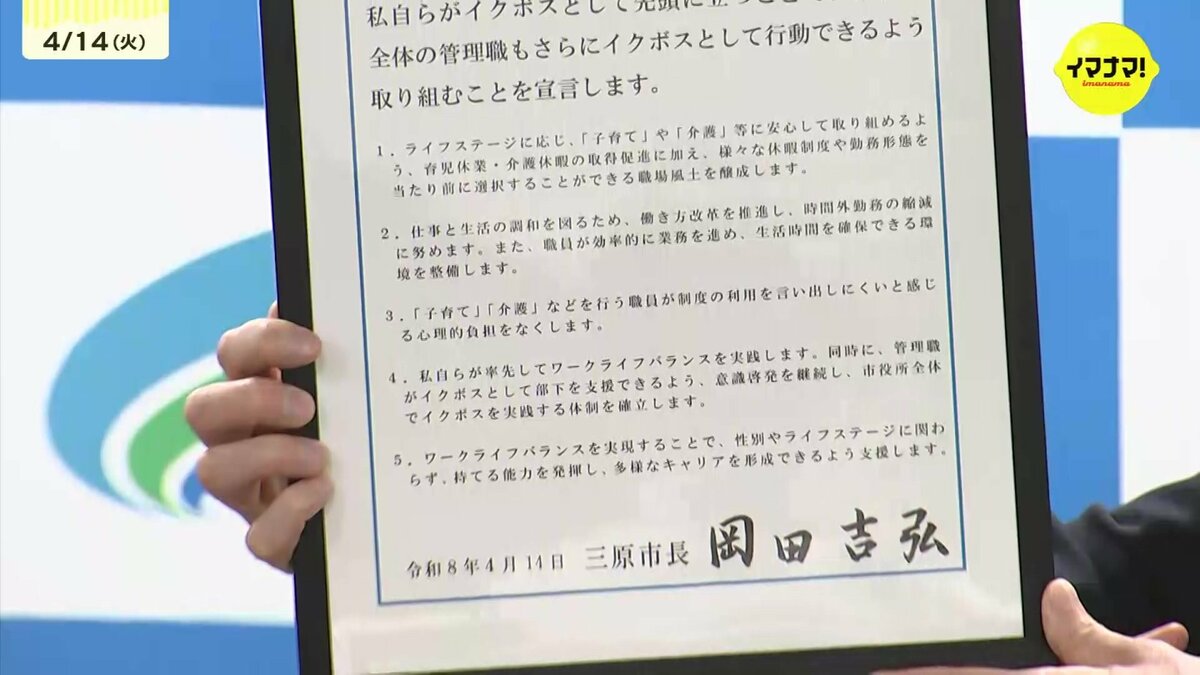 4/14(火)
イマナマ!
imanama
私自らがイクボスとして先頭に立つこと
全体の管理職もさらにイクボスとして行動できるよう
取り組むことを宣言します。
1．ライフステージに応じ、「子育て」や「介護」等に安心して取り組めるよ
う、育児休業・介護休暇の取得促進に加え、様々な休暇制度や勤務形態を
当たり前に選択することができる職場風土を醸成します。
2．仕事と生活の調和を図るため、働き方改革を推進し、時間外勤務の縮減
に努めます。また、職員が効率的に業務を進め、生活時間を確保できる環
境を整備します。
3．「子育て」「介護」などを行う職員が制度の利用を言い出しにくいと感じ
る心理的負担をなくします。
4．私自らが率先してワークライフバランスを実践します。同時に、管理職
がイクボスとして部下を支援できるよう、意識啓発を継続し、市役所全体
でイクボスを実践する体制を確立します。
5．ワークライフバランスを実現することで、性別やライフステージに関わ
らず、持てる能力を発揮し、多様なキャリアを形成できるよう支援します。
令和8年4月14日 三原市長 岡田吉弘